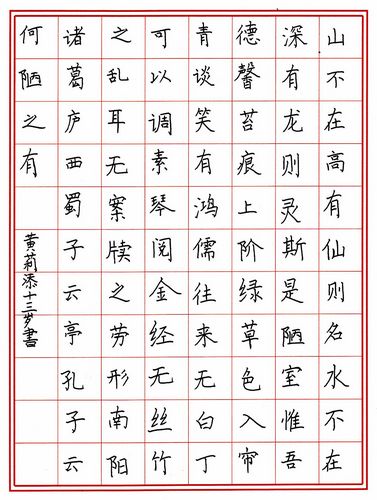 山不在高有仙则名水不在
深有龙则灵斯是陋室惟吾
德馨苔痕上阶绿草色入帘
青谈笑有鸿儒往来无白丁
可以调素琴阅金经无丝竹
之乱耳无案牍之劳形南阳
诸葛庐西蜀子云亭孔子云
何陋之有
黄莉添十三岁書